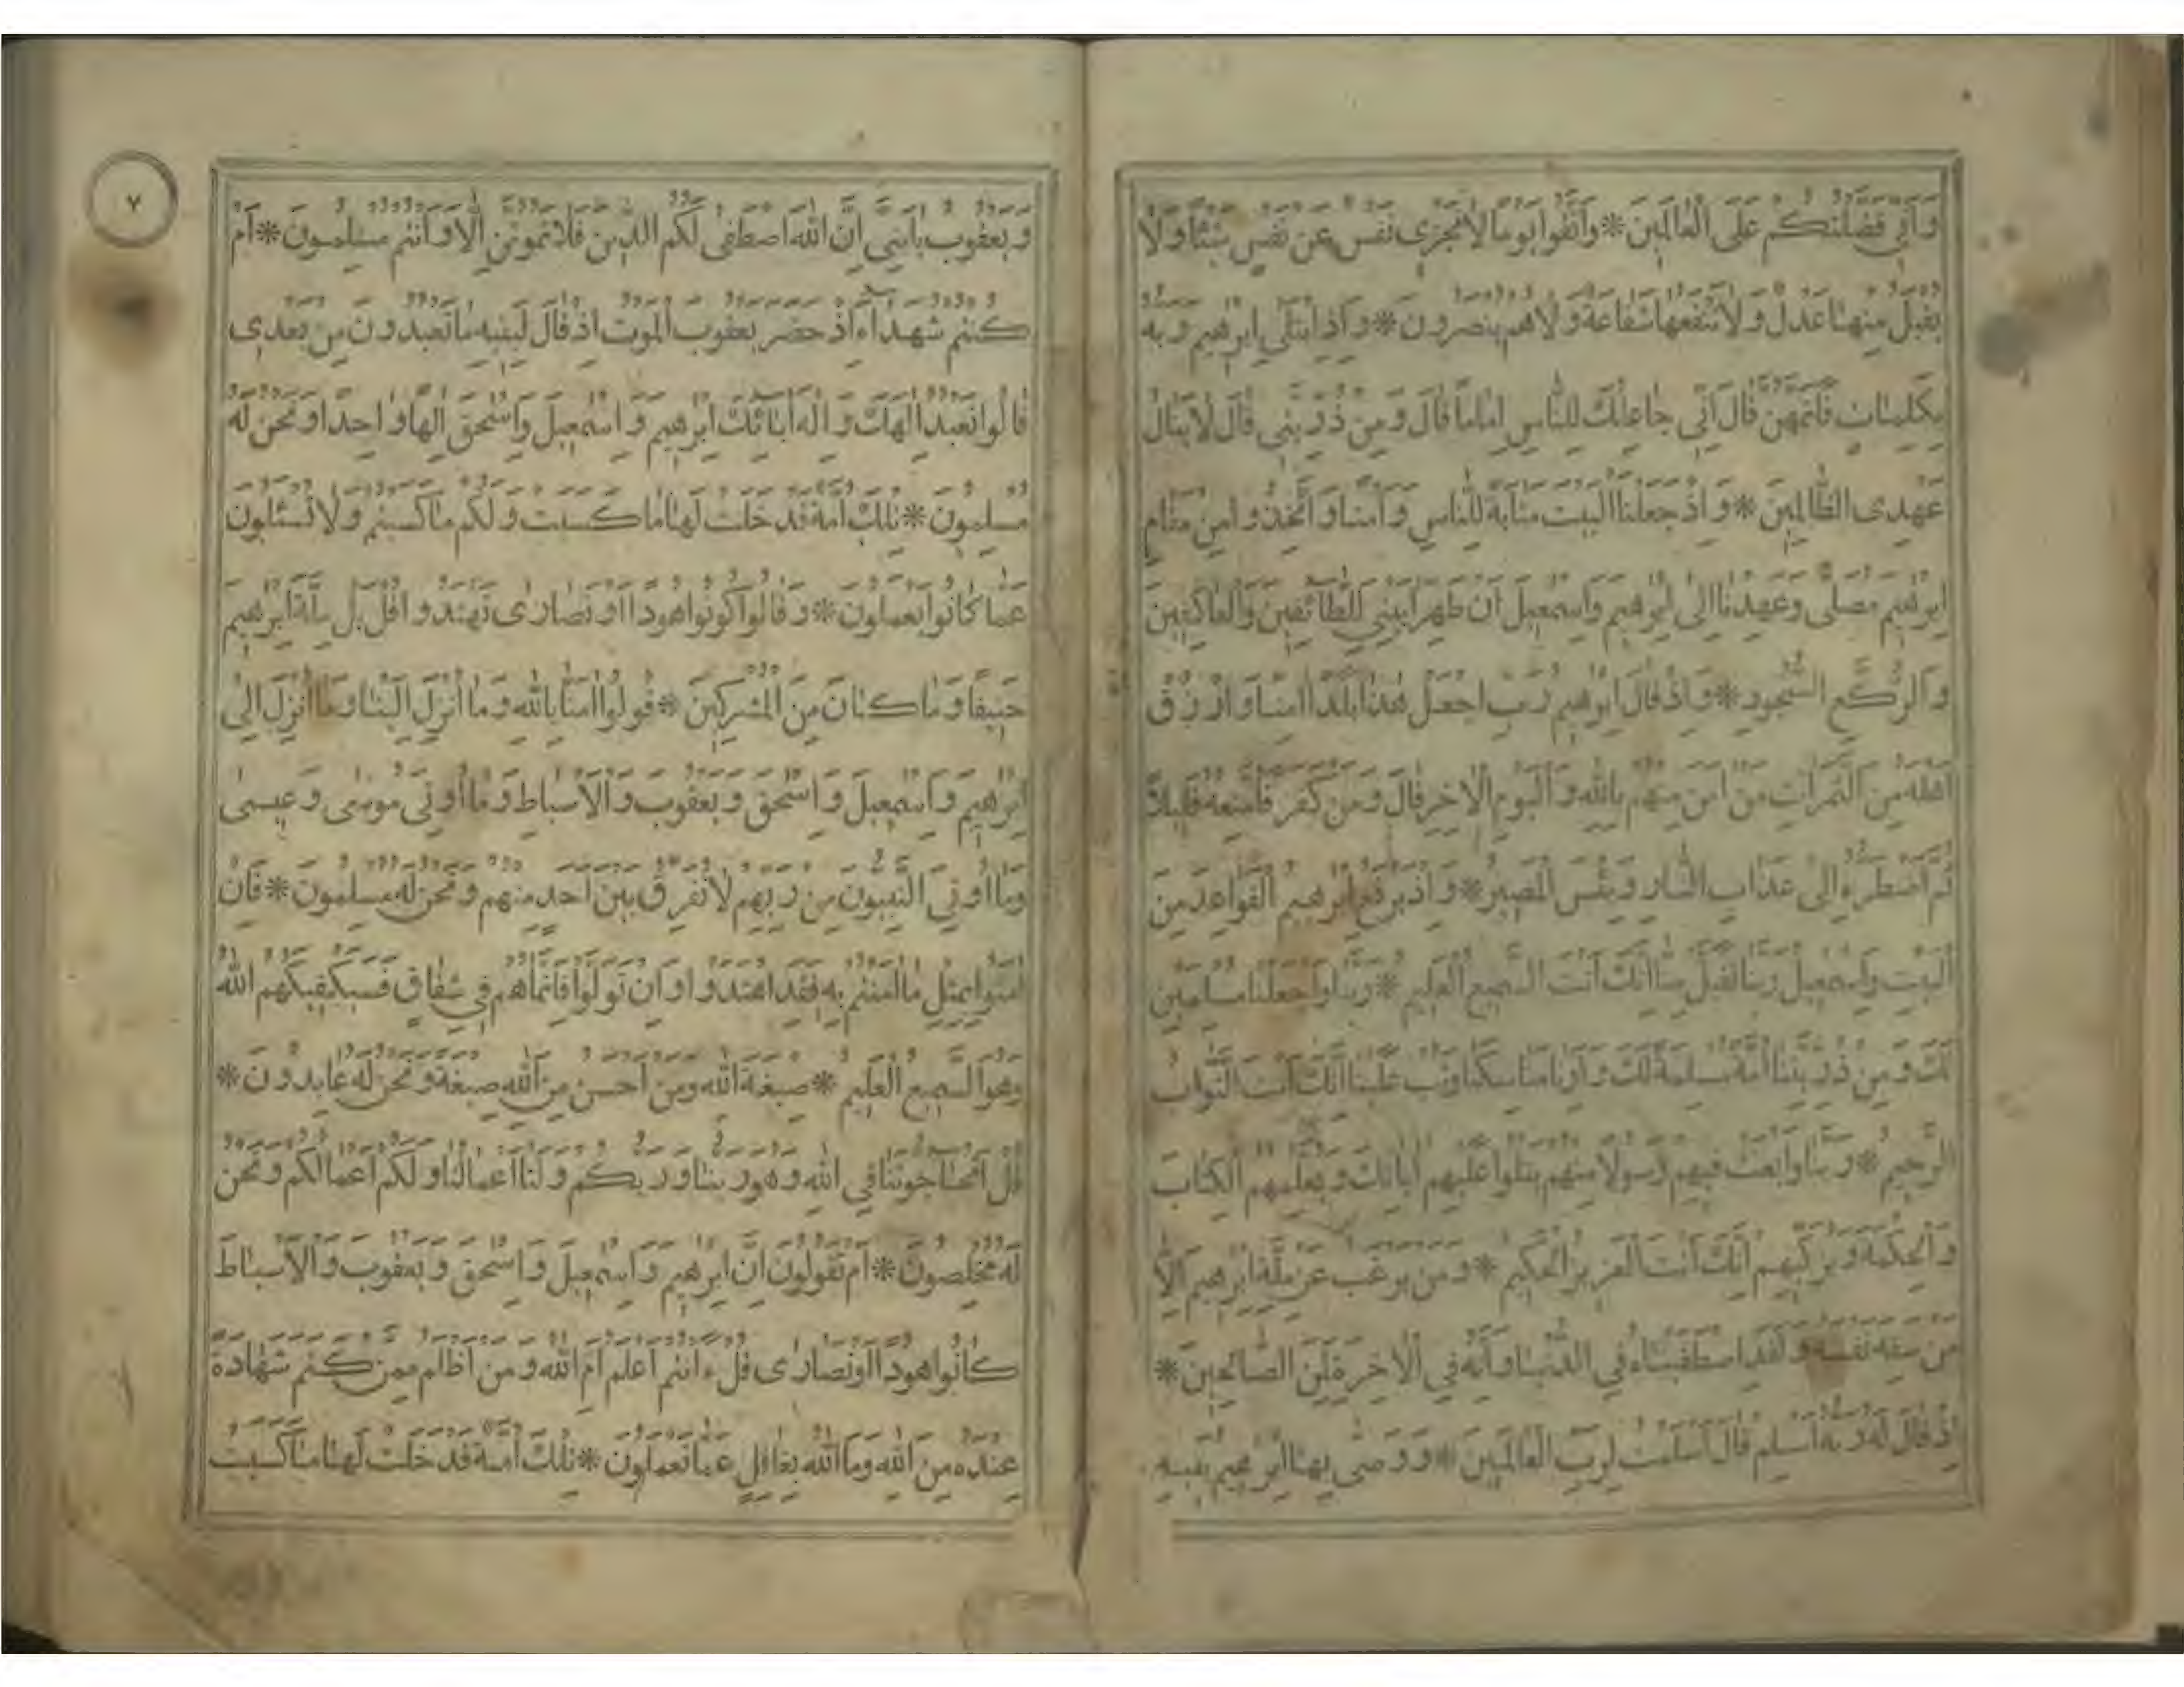 وَاَنِّي فَضَّلْتُكُمْ عَلَى الْعَالَمِينَ * وَاتَّقُوا يَوْمًا لَا تَجْزِي نَفْسٌ عَنْ نَفْسٍ شَيْئًا وَلَا
يُقْبَلُ مِنْهَا عَدْلٌ وَلَا تَنْفَعُهَا شَفَاعَةٌ وَلَا هُمْ يُنْصَرُونَ * وَاِذِ ابْتَلٰى اِبْرٰهِيمَ رَبُّهُ
بِكَلِمَاتٍ فَاَتَمَّهُنَّ قَالَ اِنِّي جَاعِلُكَ لِلنَّاسِ اِمَامًا قَالَ وَمِنْ ذُرِّيَّتِي قَالَ لَا يَنَالُ
عَهْدِى الظَّالِمِينَ * وَاِذْ جَعَلْنَا الْبَيْتَ مَثَابَةً لِلنَّاسِ وَاَمْنًا وَاتَّخِذُوا مِنْ مَقَامِ
اِبْرٰهِيمَ مُصَلًّى وَعَهِدْنَا اِلٰى اِبْرٰهِيمَ وَاِسْمٰعِيلَ اَنْ طَهِّرَا بَيْتِيَ لِلطَّائِفِينَ وَالْعَاكِفِينَ
وَالرُّكَّعِ السُّجُودِ * وَاِذْ قَالَ اِبْرٰهِيمُ رَبِّ اجْعَلْ هٰذَا بَلَدًا اٰمِنًا وَارْزُقْ
اَهْلَهُ مِنَ الثَّمَرَاتِ مَنْ اٰمَنَ مِنْهُمْ بِاللّٰهِ وَالْيَوْمِ الْاٰخِرِ قَالَ وَمَنْ كَفَرَ فَاُمَتِّعُهُ قَلِيلًا
ثُمَّ اَضْطَرُّهُ اِلٰى عَذَابِ النَّارِ وَبِئْسَ الْمَصِيرُ * وَاِذْ يَرْفَعُ اِبْرٰهِيمُ الْقَوَاعِدَ مِنَ
الْبَيْتِ وَاِسْمٰعِيلُ رَبَّنَا تَقَبَّلْ مِنَّا اِنَّكَ اَنْتَ السَّمِيعُ الْعَلِيمُ * رَبَّنَا وَاجْعَلْنَا مُسْلِمَيْنِ
لَكَ وَمِنْ ذُرِّيَّتِنَا اُمَّةً مُسْلِمَةً لَكَ وَاَرِنَا مَنَاسِكَنَا وَتُبْ عَلَيْنَا اِنَّكَ اَنْتَ التَّوَّابُ
الرَّحِيمُ * رَبَّنَا وَابْعَثْ فِيهِمْ رَسُولًا مِنْهُمْ يَتْلُوا عَلَيْهِمْ اٰيَاتِكَ وَيُعَلِّمُهُمُ الْكِتَابَ
وَالْحِكْمَةَ وَيُزَكِّيهِمْ اِنَّكَ اَنْتَ الْعَزِيزُ الْحَكِيمُ * وَمَنْ يَرْغَبُ عَنْ مِلَّةِ اِبْرٰهِيمَ اِلَّا
مَنْ سَفِهَ نَفْسَهُ وَلَقَدِ اصْطَفَيْنَاهُ فِي الدُّنْيَا وَاِنَّهُ فِي الْاٰخِرَةِ لَمِنَ الصَّالِحِينَ *
اِذْ قَالَ لَهُ رَبُّهُ اَسْلِمْ قَالَ اَسْلَمْتُ لِرَبِّ الْعَالَمِينَ * وَوَصّٰى بِهَا اِبْرٰهِيمُ بَنِيهِ
٧
وَيَعْقُوبُ يَا بَنِيَّ اِنَّ اللّٰهَ اصْطَفٰى لَكُمُ الدِّينَ فَلَا تَمُوتُنَّ اِلَّا وَاَنْتُمْ مُسْلِمُونَ * اَمْ
كُنْتُمْ شُهَدَاءَ اِذْ حَضَرَ يَعْقُوبَ الْمَوْتُ اِذْ قَالَ لِبَنِيهِ مَا تَعْبُدُونَ مِنْ بَعْدِى
قَالُوا نَعْبُدُ اِلٰهَكَ وَاِلٰهَ اٰبَائِكَ اِبْرٰهِيمَ وَاِسْمٰعِيلَ وَاِسْحٰقَ اِلٰهًا وَاحِدًا وَنَحْنُ لَهُ
مُسْلِمُونَ * تِلْكَ اُمَّةٌ قَدْ خَلَتْ لَهَا مَا كَسَبَتْ وَلَكُمْ مَا كَسَبْتُمْ وَلَا تُسْئَلُونَ
عَمَّا كَانُوا يَعْمَلُونَ * وَقَالُوا كُونُوا هُودًا اَوْ نَصَارٰى تَهْتَدُوا قُلْ بَلْ مِلَّةَ اِبْرٰهِيمَ
حَنِيفًا وَمَا كَانَ مِنَ الْمُشْرِكِينَ * قُولُوا اٰمَنَّا بِاللّٰهِ وَمَا اُنْزِلَ اِلَيْنَا وَمَا اُنْزِلَ اِلٰى
اِبْرٰهِيمَ وَاِسْمٰعِيلَ وَاِسْحٰقَ وَيَعْقُوبَ وَالْاَسْبَاطِ وَمَا اُوتِيَ مُوسٰى وَعِيسٰى
وَمَا اُوتِيَ النَّبِيُّونَ مِنْ رَبِّهِمْ لَا نُفَرِّقُ بَيْنَ اَحَدٍ مِنْهُمْ وَنَحْنُ لَهُ مُسْلِمُونَ * فَاِنْ
اٰمَنُوا بِمِثْلِ مَا اٰمَنْتُمْ بِهِ فَقَدِ اهْتَدَوْا وَاِنْ تَوَلَّوْا فَاِنَّمَا هُمْ فِي شِقَاقٍ فَسَيَكْفِيكَهُمُ اللّٰهُ
وَهُوَ السَّمِيعُ الْعَلِيمُ * صِبْغَةَ اللّٰهِ وَمَنْ اَحْسَنُ مِنَ اللّٰهِ صِبْغَةً وَنَحْنُ لَهُ عَابِدُونَ *
قُلْ اَتُحَاجُّونَنَا فِي اللّٰهِ وَهُوَ رَبُّنَا وَرَبُّكُمْ وَلَنَا اَعْمَالُنَا وَلَكُمْ اَعْمَالُكُمْ وَنَحْنُ
لَهُ مُخْلِصُونَ * اَمْ تَقُولُونَ اِنَّ اِبْرٰهِيمَ وَاِسْمٰعِيلَ وَاِسْحٰقَ وَيَعْقُوبَ وَالْاَسْبَاطَ
كَانُوا هُودًا اَوْ نَصَارٰى قُلْ ءَاَنْتُمْ اَعْلَمُ اَمِ اللّٰهُ وَمَنْ اَظْلَمُ مِمَّنْ كَتَمَ شَهَادَةً
عِنْدَهُ مِنَ اللّٰهِ وَمَا اللّٰهُ بِغَافِلٍ عَمَّا تَعْمَلُونَ * تِلْكَ اُمَّةٌ قَدْ خَلَتْ لَهَا مَا كَسَبَتْ